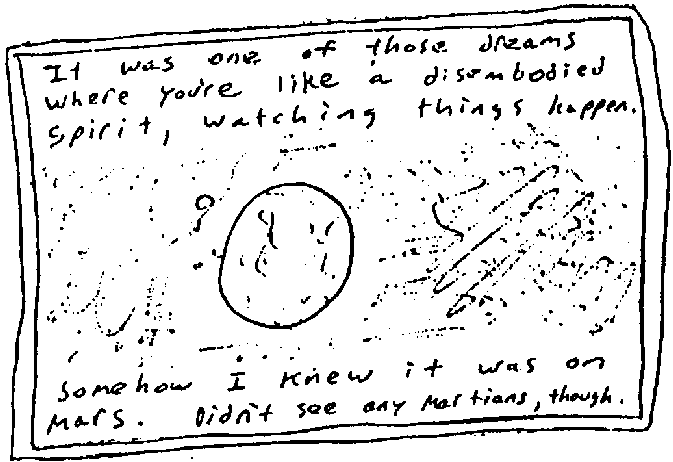 It was one of those dreams
where you're like a disembodied
spirit, watching things happen.
Somehow I knew it was on
Mars. Didn't see any Martians, though.